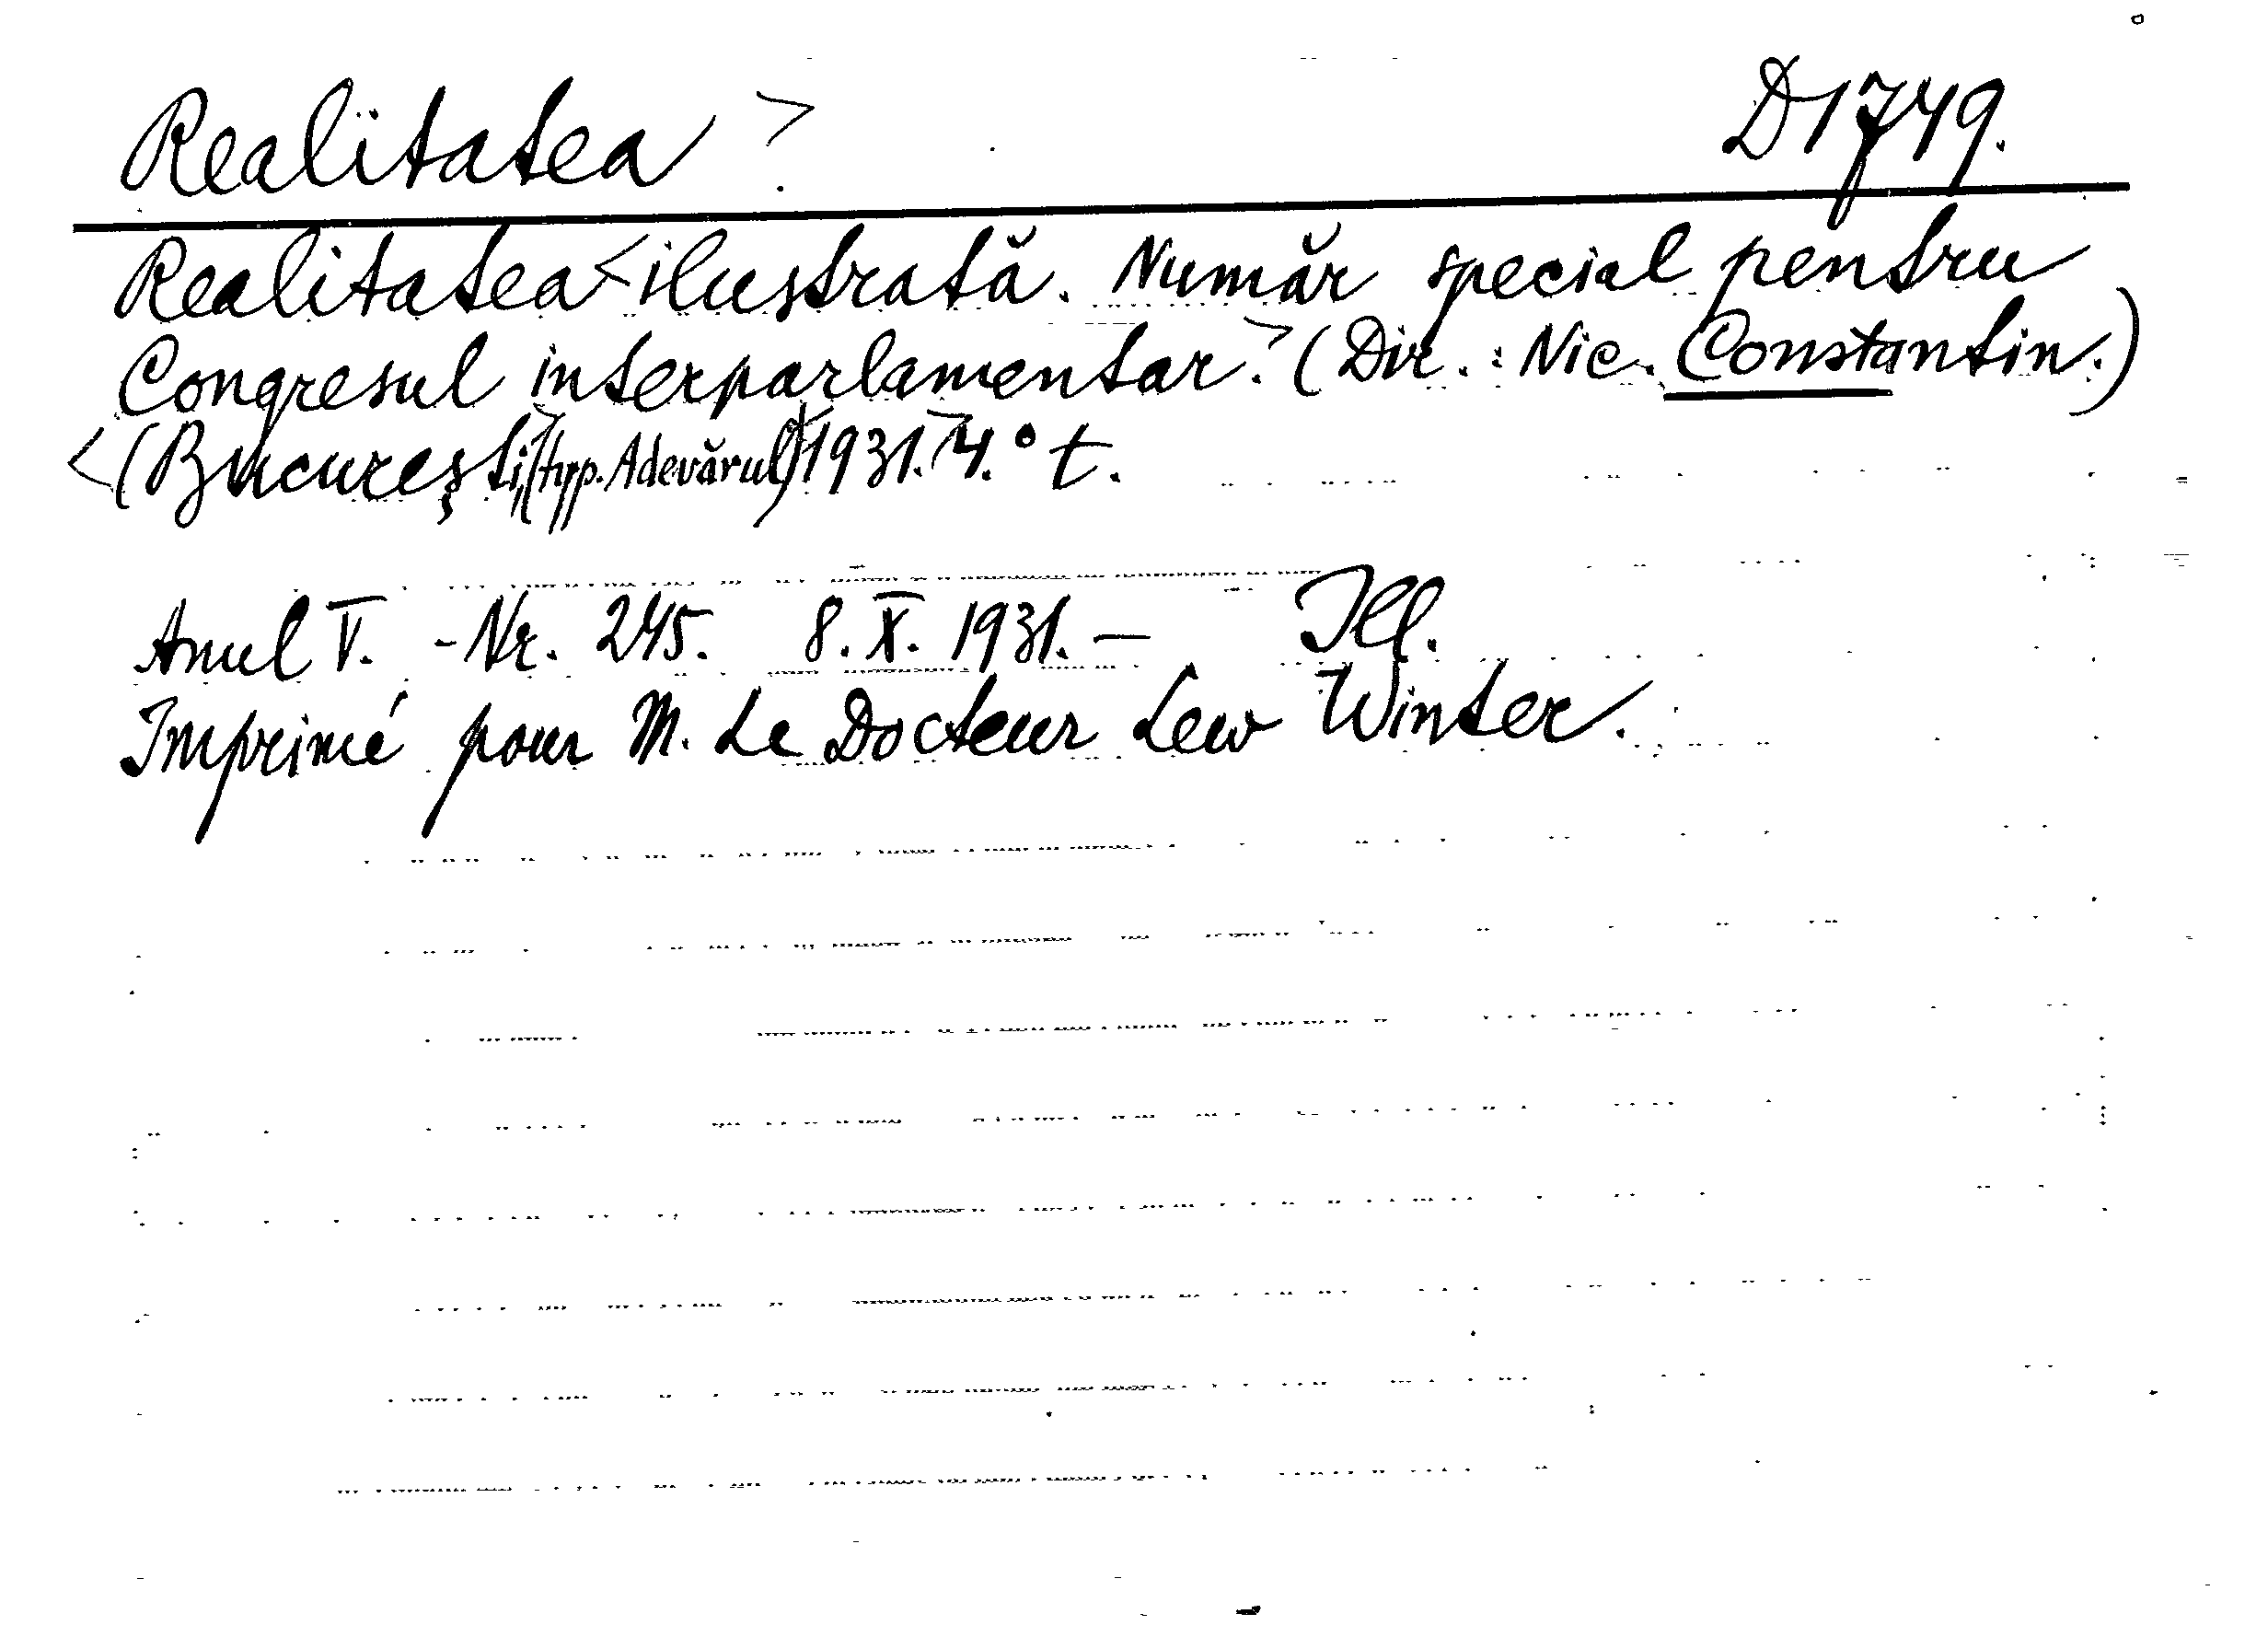 Realitatea > D1749.
Realitatea < ilustrată. Număr special pentru
Congresul interparlamentar.> (Dir.: Nic. Constantin.)
<(București,> (typ. Adevărul) 1931.> 4.° t.
Anul V. - Nr. 245. 8. X. 1931. — Ill.
Imprimé pour M. Le Docteur Lew Winter.